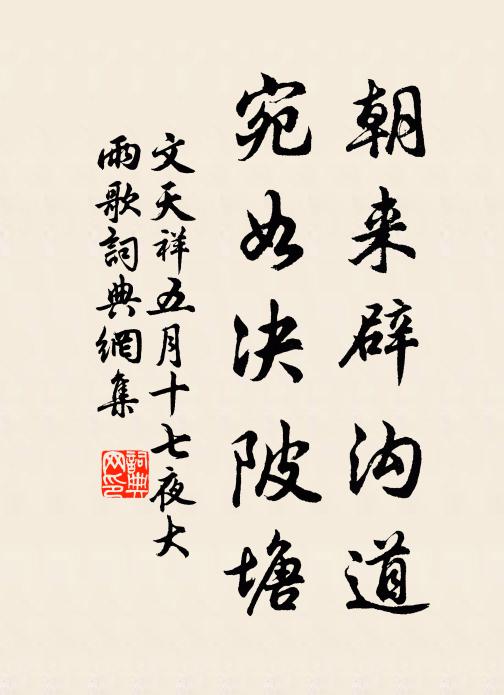 朝来辟沟道
宛如决陂塘
文天祥五月十七夜大
雨歌詞典網集
詞典网印